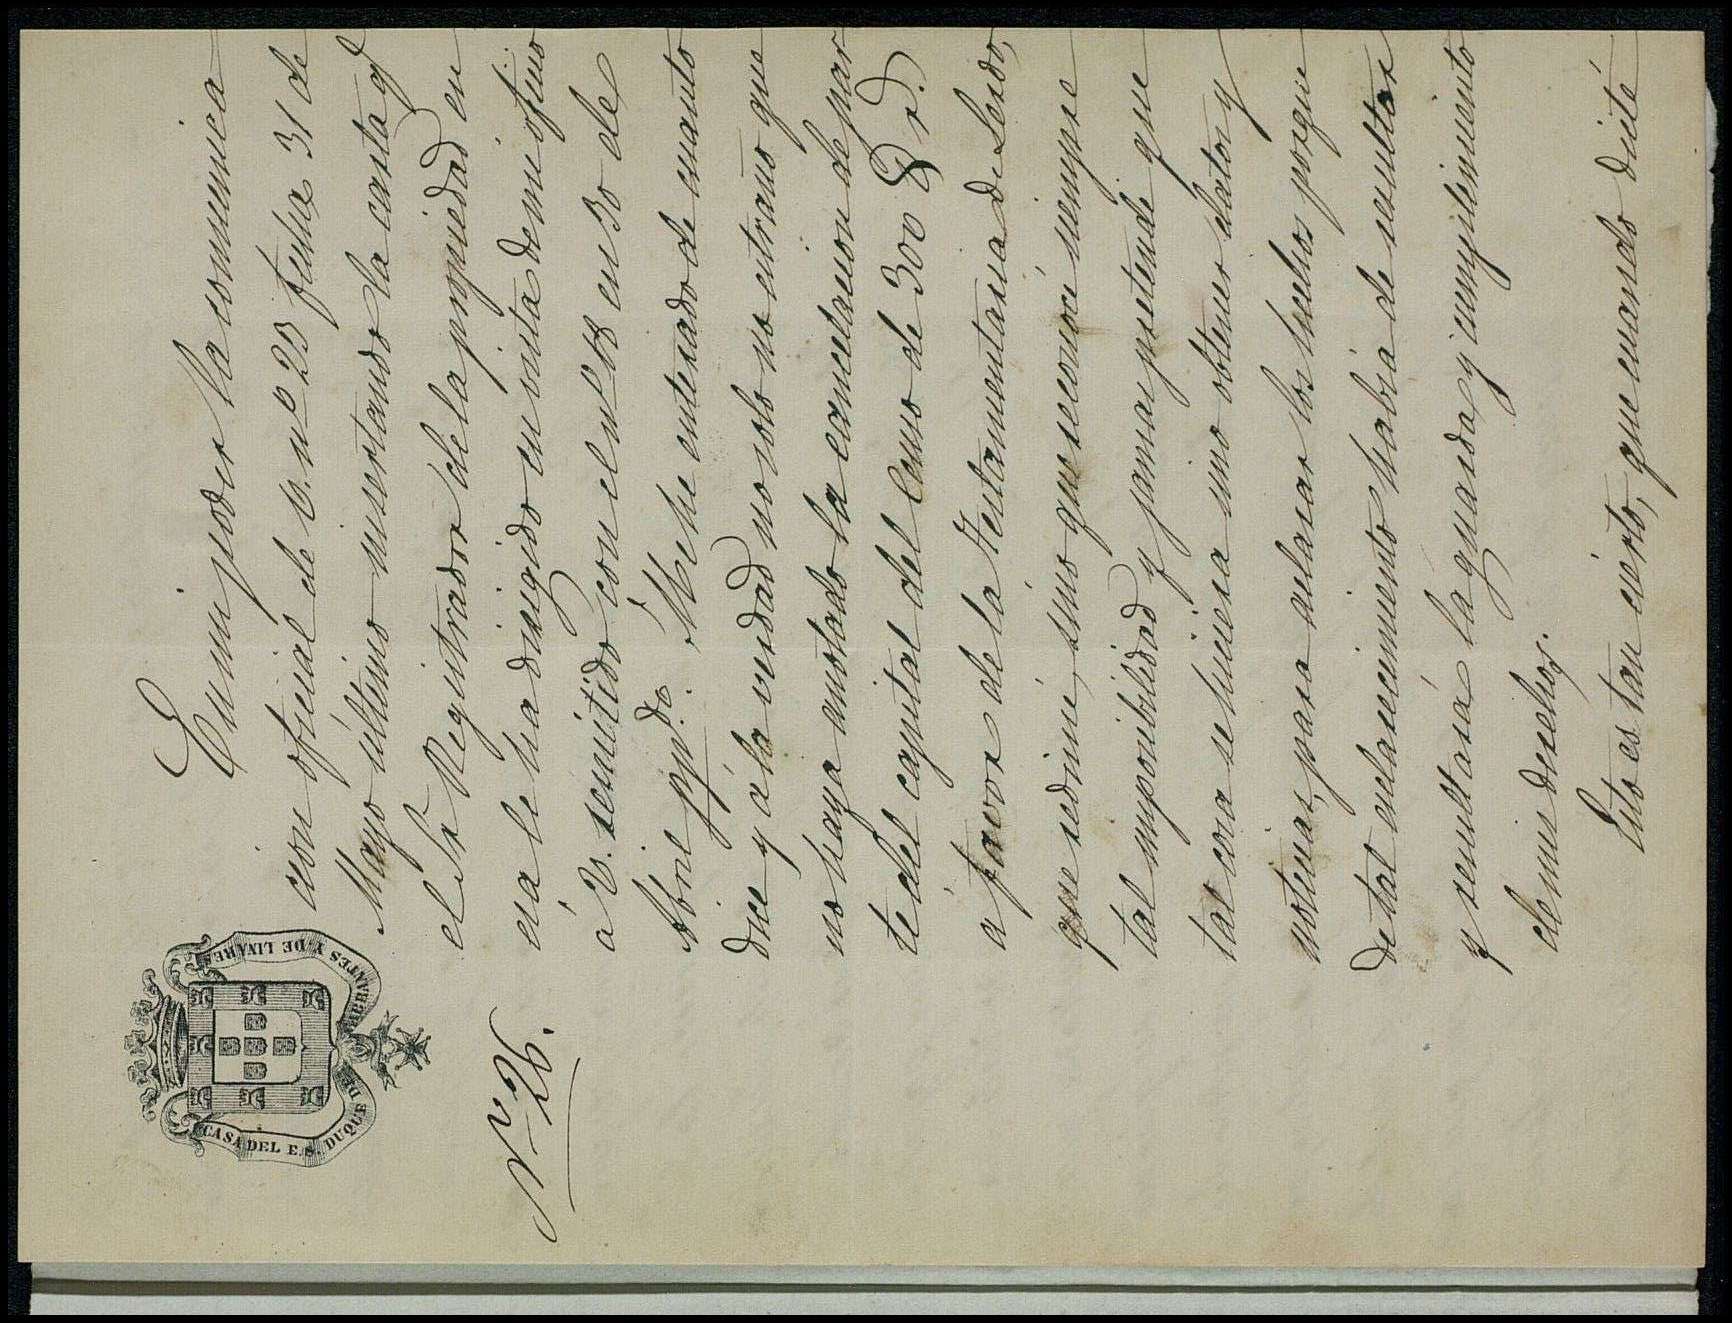 CASA DEL E.S. DUQUE DE ABRANTES Y DE LINARES
Nº 26.
En mi poder la comunica
cion oficial de V. nº 23 fecha 31 de
Mayo último insertando la carta qe
el Sr Registrador de la propiedad en
esa le ha dirigido en vista de mi oficio
á V. remitido con el nº 18 en 30 de
Abril pp.do Me he enterado de cuanto
dice y á la verdad no solo no estraño que
no haya anotado la cancelacion de par
te del capital del Censo de 300 D r.s
a favor de la Testamentaria de Lesdo,
que redimí, sino que reconocí siempre
tal imposibilidad y jamas pretendí que
tal cosa se hiciera sino obtener datos y
noticias, para aclarar los hechos porque
de tal esclarecimiento habia de resultar
y resultará la guarda y cumplimiento
de mis derechos.
Esto es tan cierto, que cuando dicté